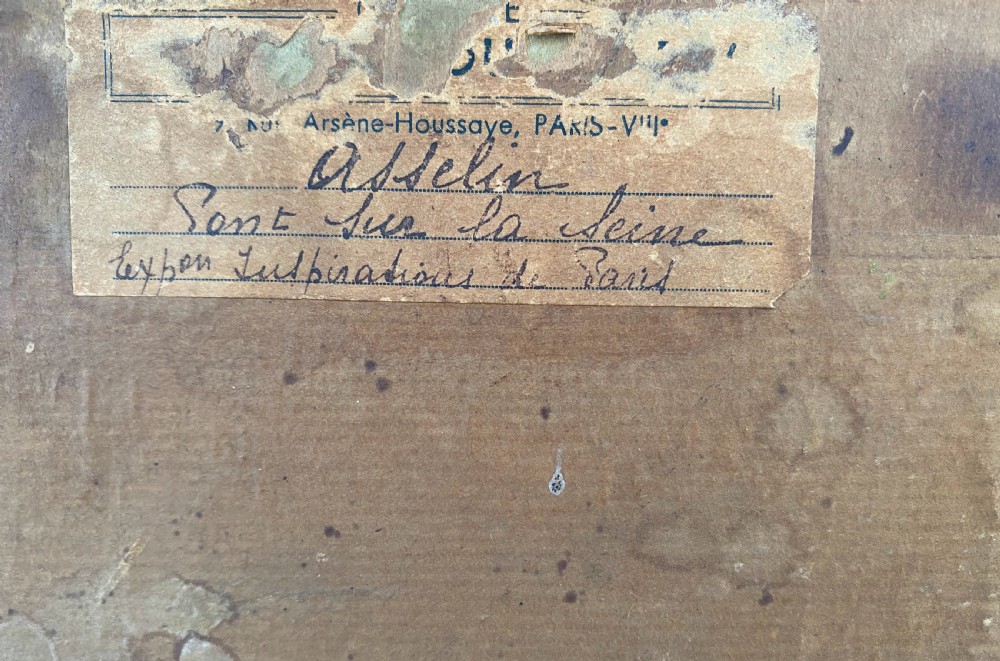 Arsène-Houssaye, PARIS-VIIIe
Asselin
Pont sur la Seine
Expon Inspirations de Paris